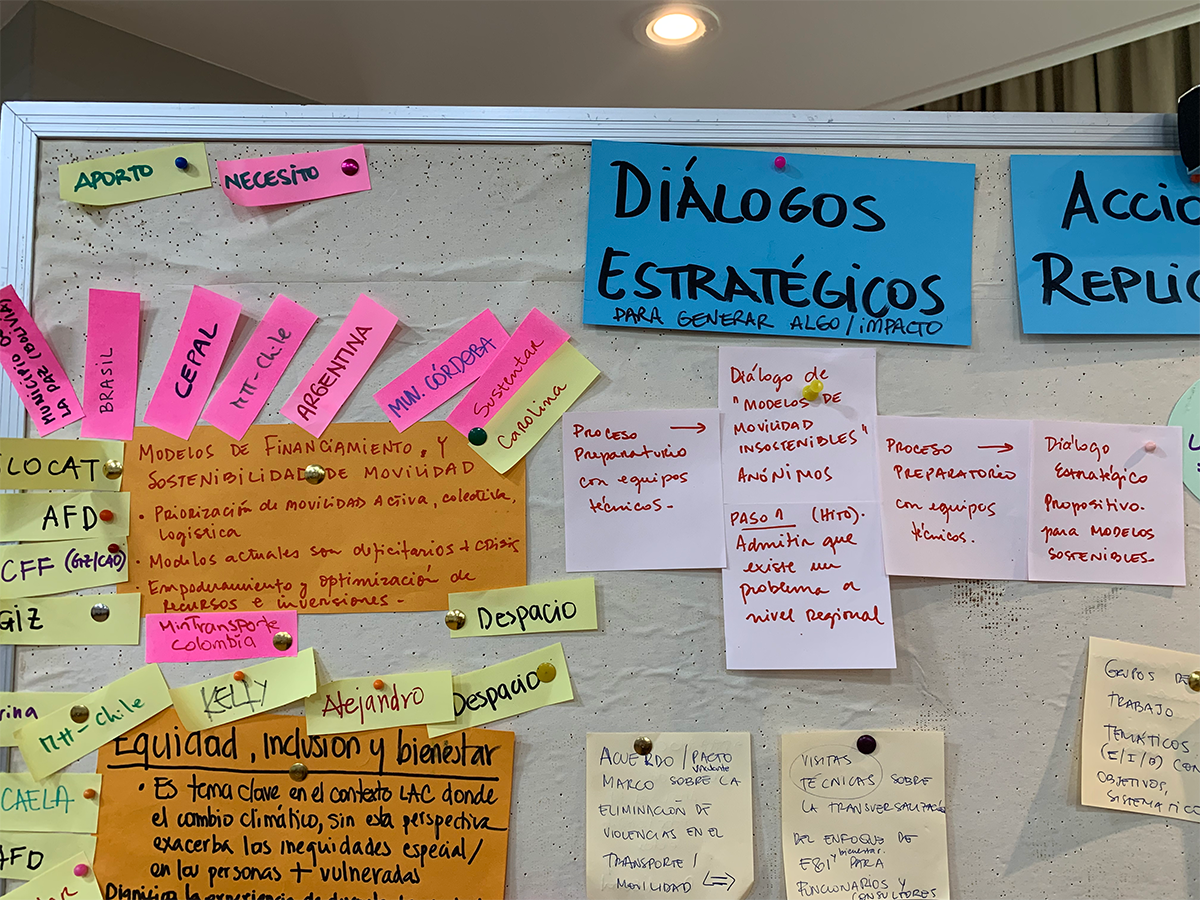 APORTO
NECESITO
DIÁLOGOS
ESTRATÉGICOS
PARA GENERAR ALGO/IMPACTO
ACCIO
REPLIC
MUNICIPIO DE
LA PAZ (BOLIVIA)
BRASIL
CEPAL
MTT-Chile
ARGENTINA
MUN. CÓRDOBA
Sustentar
Carolina
SLOCAT
AFD
CFF (GIZ/C40)
GIZ
MODELOS DE FINANCIAMIENTO, Y
SOSTENIBILIDAD DE MOVILIDAD
• PRIORIZACIÓN DE MOVILIDAD ACTIVA, colectiva,
logística
• Modelos actuales son deficitarios + CRISIS
• Empoderamiento y optimización de
RECURSOS E INVERSIONES.-
MinTransporte
Colombia
Despacio
PROCESO →
Preparatorio
con equipos
técnicos.-
Diálogo de
"MODELOS DE
MOVILIDAD
INSOSTENIBLES"
ANÓNIMOS
PASO 1 (HITO).
Admitir que
existe un
problema a
nivel Regional
PROCESO →
PREPARATORIO
con equipos
técnicos.
Diálogo
Estratégico
Propositivo.
para MODELOS
SOSTENIBLES-
rina
MTT-Chile
KELLY
Alejandro
Despacio
CAELA
AFD
Equidad, Inclusión y bienestar
• Es tema clave en el contexto LAC donde
el cambio climático, sin esta perspectiva
exacerba las inequidades especial/
en las personas + vulneradas
ACUERDO / PACTO
vinculante
MARCO SOBRE LA
ELIMINACIÓN DE
VIOLENCIAS EN EL
TRANSPORTE /
MOVILIDAD
VISITAS
TÉCNICAS SOBRE
LA TRANSVERSALIZACIÓN
DEL ENFOQUE DE
y bienestar.
E&I PARA
FUNCIONARIOS Y
CONSULTORES
GRUPOS DE
TRABAJO
TEMÁTICOS
(E/I/B) CON
OBJETIVOS,